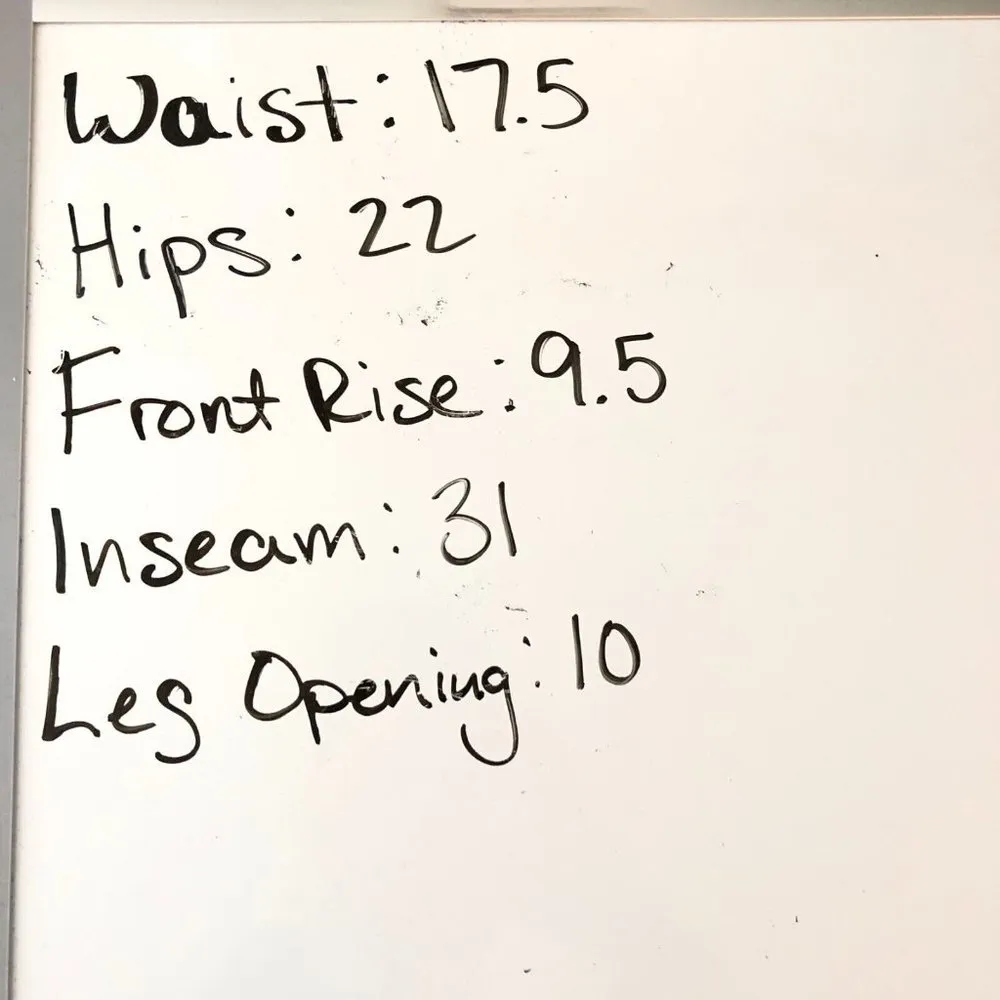 Waist: 17.5
Hips: 22
Front Rise: 9.5
Inseam: 31
Leg Opening: 10